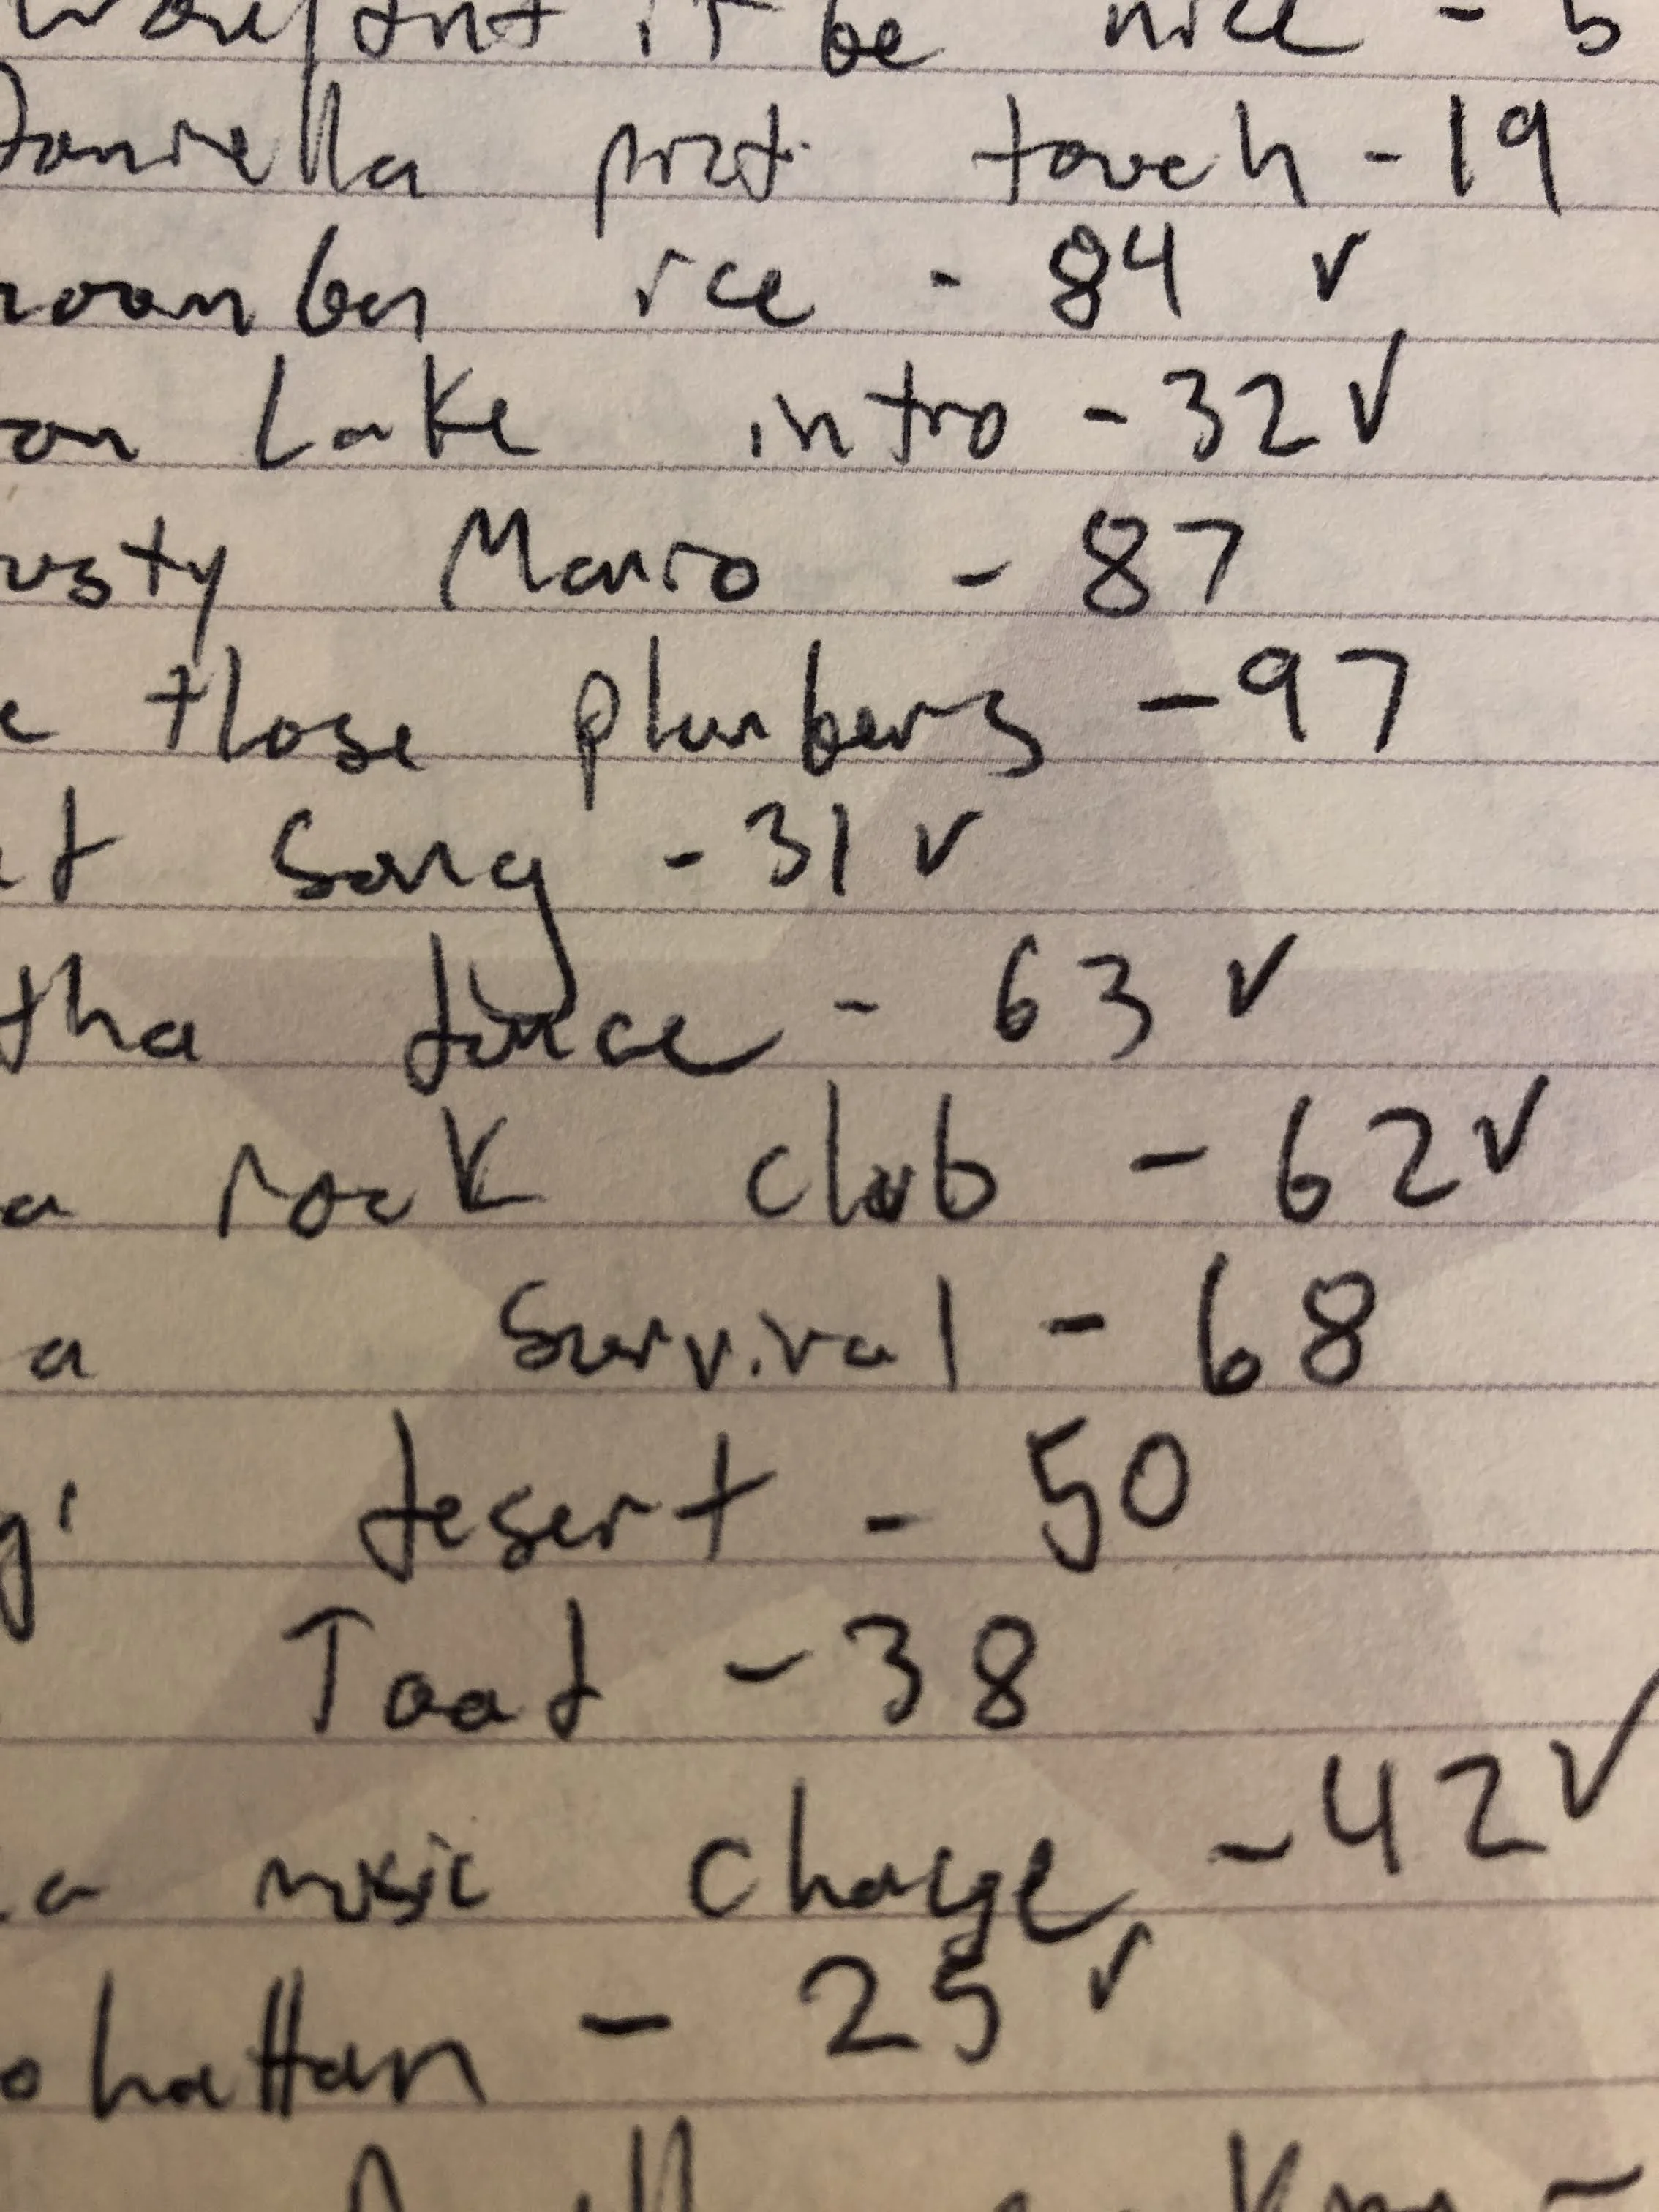 it be nice - 5
Daniella pizt touch - 19
ice - 84 ✓
on Lake intro - 32 ✓
usty Mario - 87
e those plumbers - 97
Song - 31 ✓
tha - 63 ✓
a rock club - 62 ✓
a Survival - 68
desert - 50
Toad - 38
a music change - 42 ✓
ohattan - 25 ✓